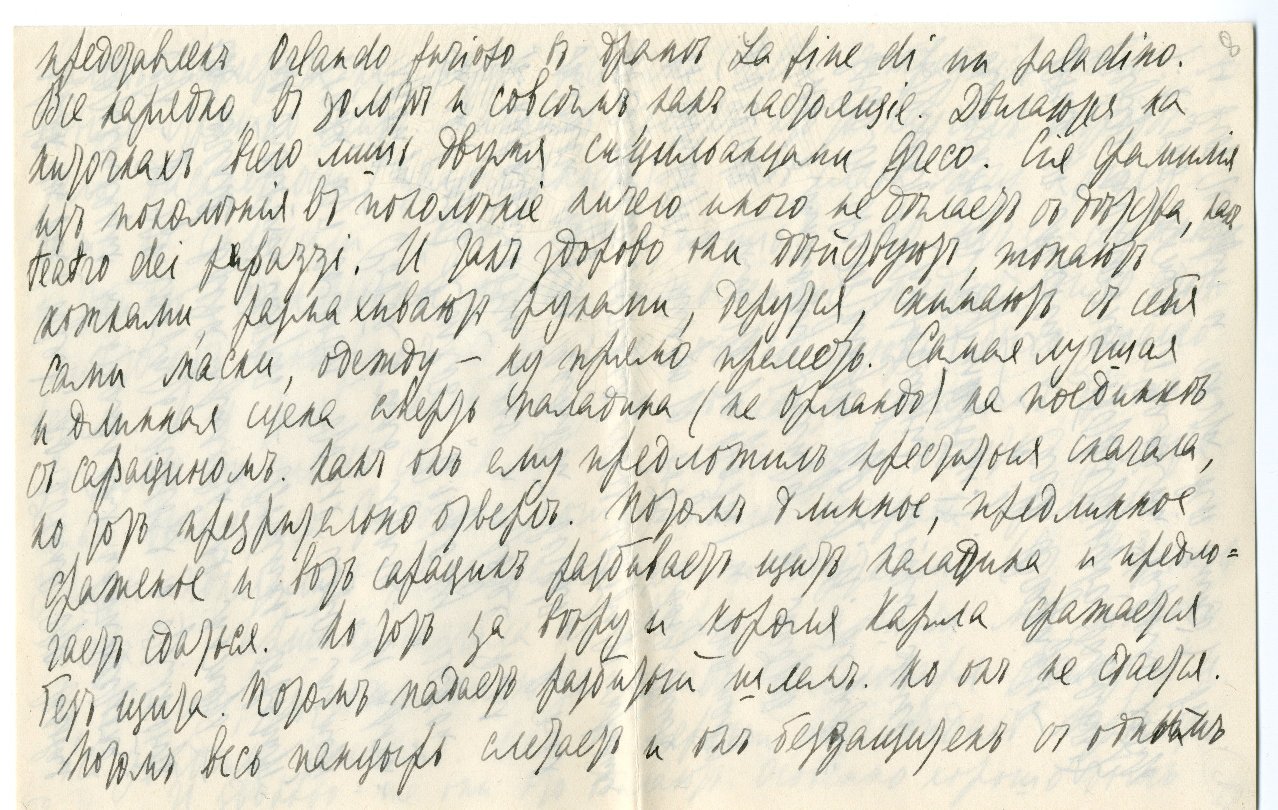 представленъ Orlando furioso въ драмѣ La fine di un paladino.
Все нарядно, въ золотѣ и совсѣмъ какъ настоящіе. Двигаются на
ниточкахъ всего лишь двумя сицильанцами Greco. Сія фамилія
изъ поколѣнія въ поколѣніе ничего иного не дѣлаетъ съ дѣтства, какъ
teatro dei pupazzi. И такъ здорово они дѣйствуютъ, топаютъ
ножками, размахиваютъ руками, дерутся, снимаютъ съ себя
сами маски, одежду – ну прямо прелесть. Самая лучшая
и длинная сцена смерть паладина (не Орландо) на поединкѣ
съ сарациномъ. Какъ онъ ему предложилъ креститься сначала,
но тотъ презрительно отвергъ. Потомъ длинное, предлинное
сраженье и вотъ сарацинъ разбиваетъ щитъ паладина и предла=
гаетъ сдаться. Но тотъ за вѣру и короля Карла сражается
безъ щита. Потомъ падаетъ разбитый шлемъ. Но онъ не сдается.
Потомъ весь панцырь слетаетъ и онъ беззащитенъ съ однимъ
8